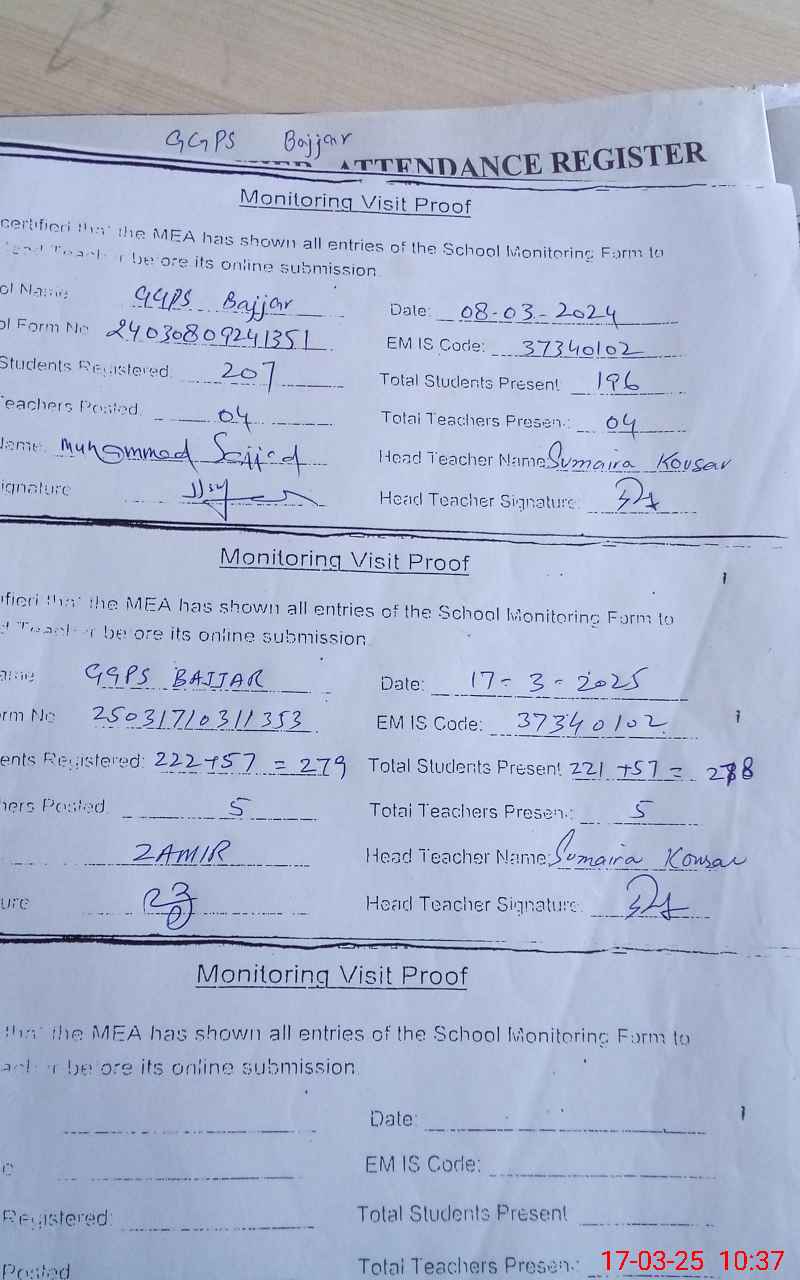 GGPS Bajjar
ATTENDANCE REGISTER
Monitoring Visit Proof
certified that the MEA has shown all entries of the School Monitoring Form to
before its online submission.
ol Name GGPS Bajjar Date: 08-03-2024
ol Form No 24030809241351 EMIS Code: 37340102
Students Registered: 207 Total Students Present 196
eachers Posted: 04 Total Teachers Present: 04
Name: Muhammad Sajjad Head Teacher Name: Sumaira Kousar
ignature Head Teacher Signature:
Monitoring Visit Proof
ified that the MEA has shown all entries of the School Monitoring Form to
d Teacher before its online submission.
ame GGPS BAJJAR Date: 17-3-2025
orm No 25031710311353 EMIS Code: 37340102
ents Registered: 222+57 = 279 Total Students Present 221+57 = 278
hers Posted: 5 Total Teachers Present: 5
ZAMIR Head Teacher Name: Sumaira Kousar
ure Head Teacher Signature:
Monitoring Visit Proof
that the MEA has shown all entries of the School Monitoring Form to
before its online submission.
Date:
EMIS Code:
Registered: Total Students Present
Posted Total Teachers Present:
17-03-25 10:37